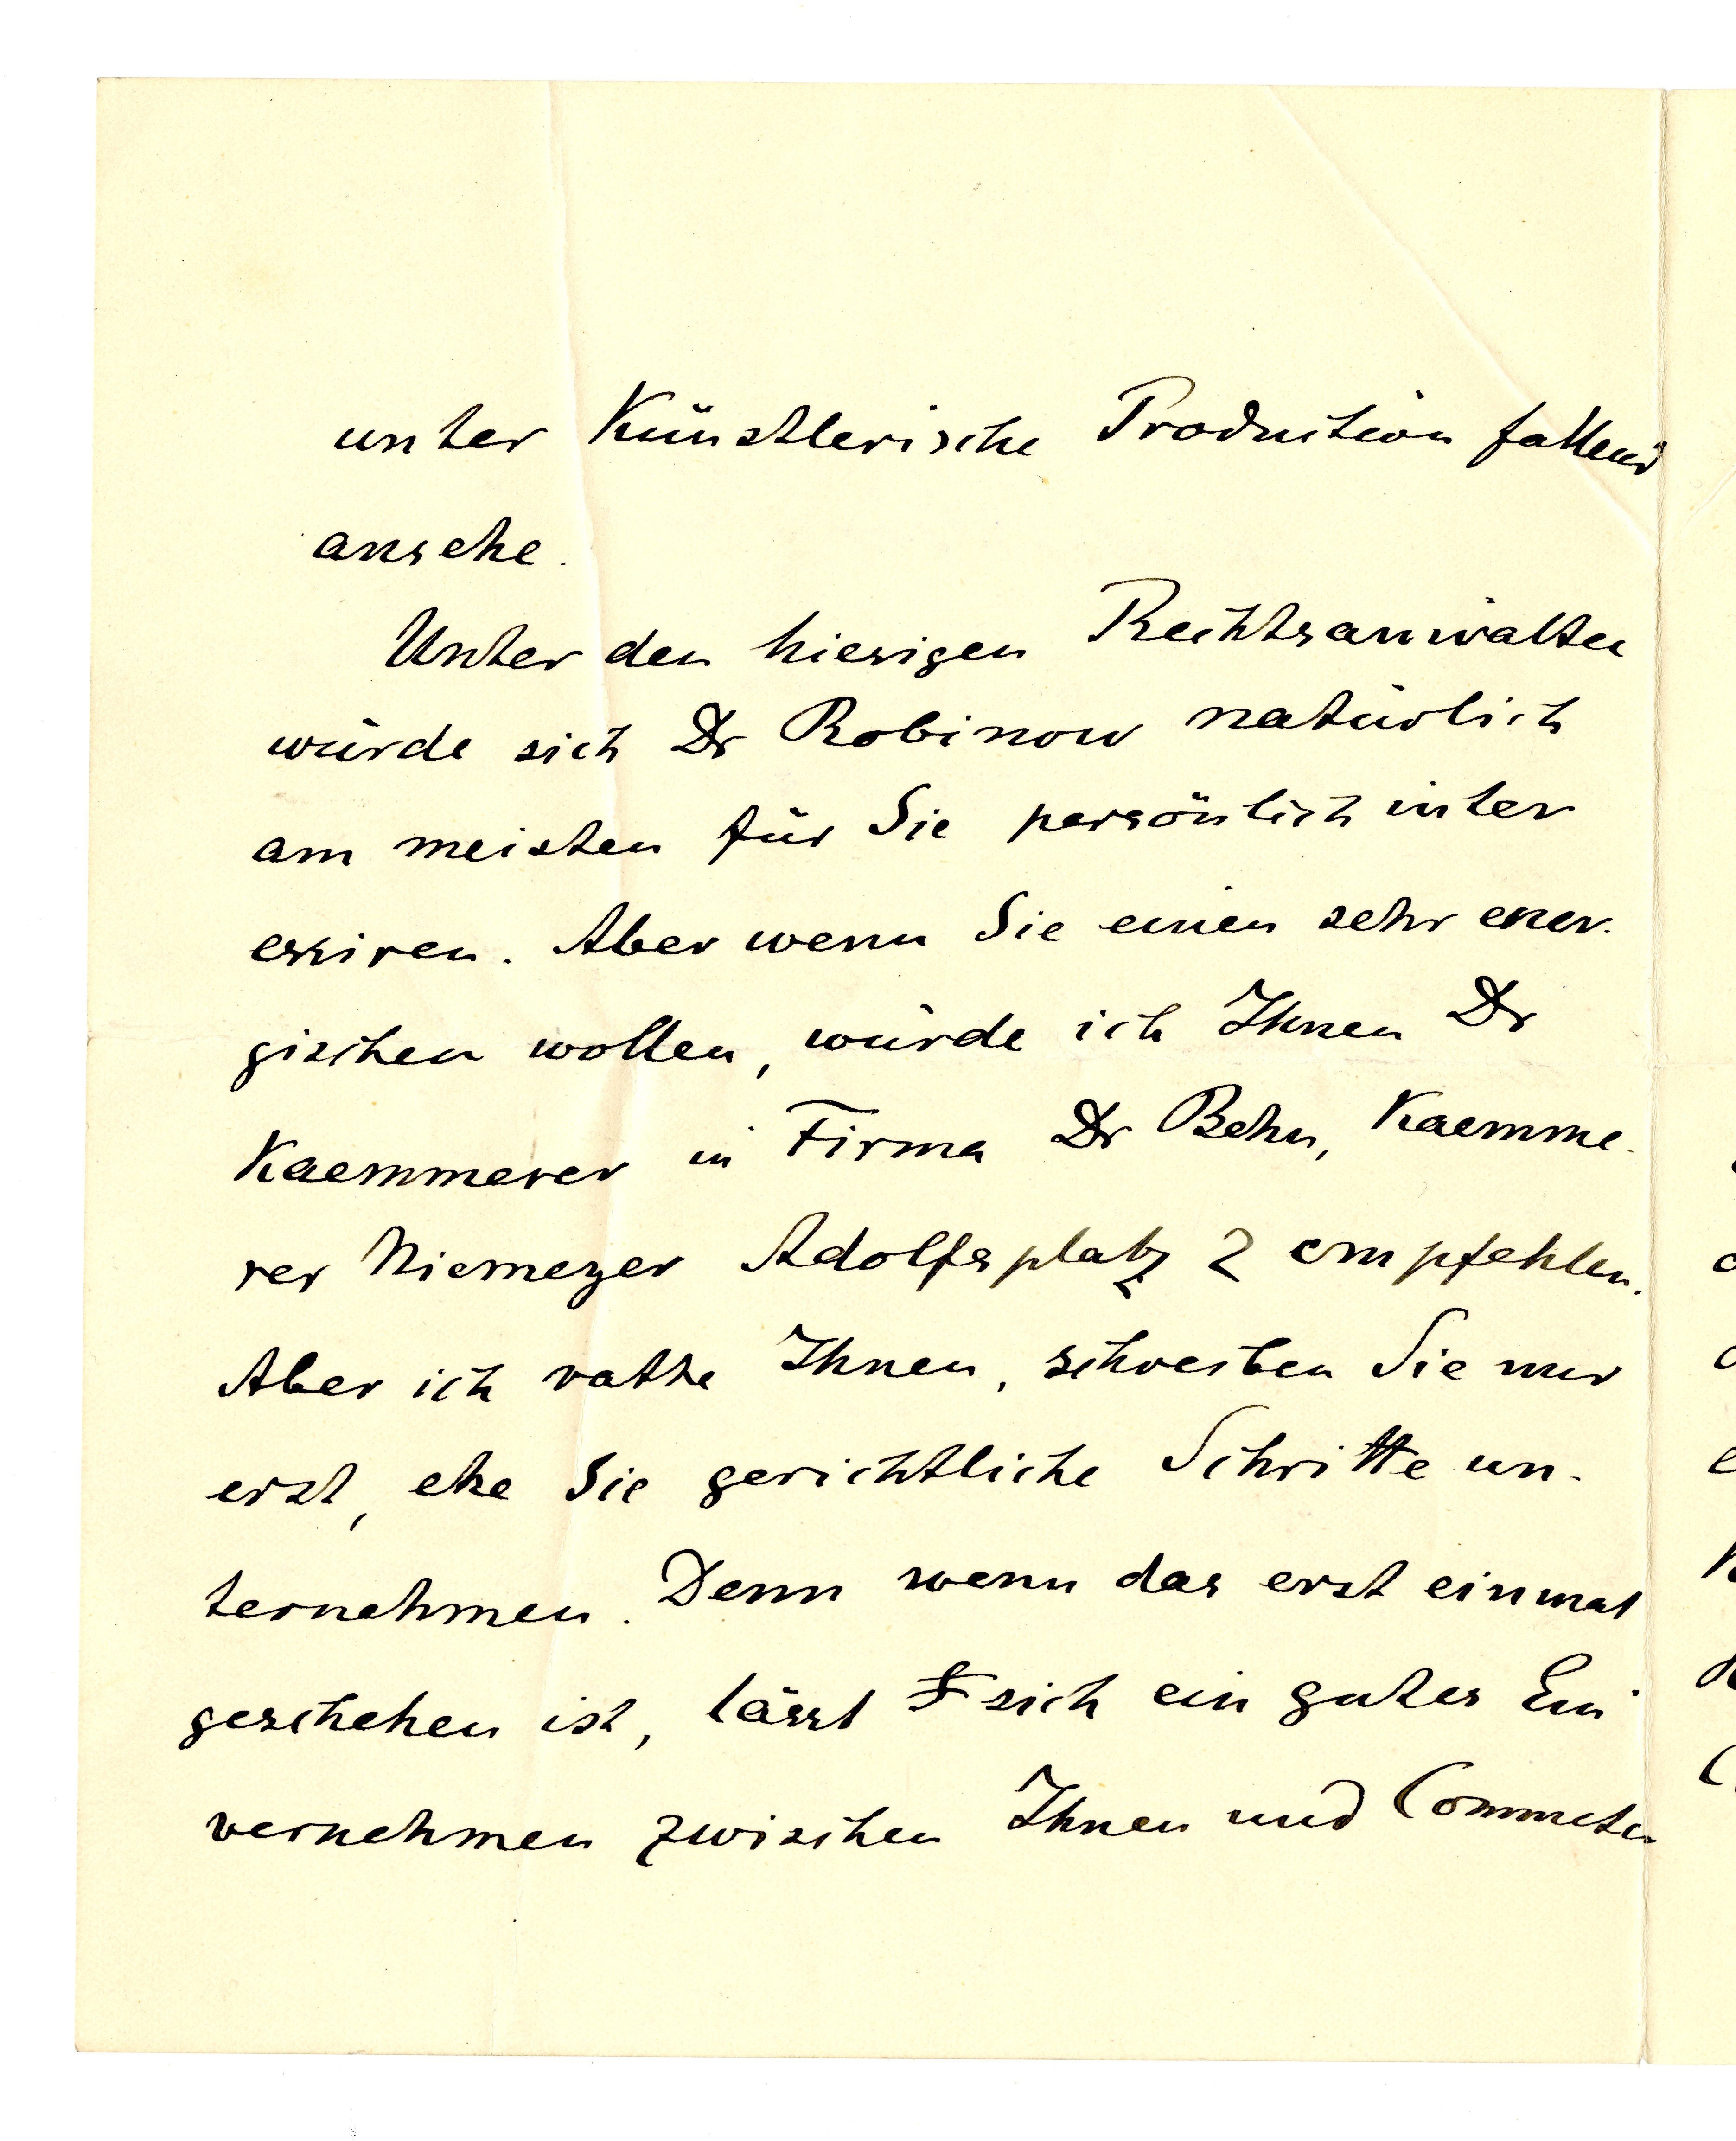 unter Künstlerische Production fallend
ansehe.
Unter den hiesigen Rechtsanwälten
würde sich Dr Robinow natürlich
am meisten für Sie persönlich inter
essiren. Aber wenn Sie einen sehr ener-
gischen wollen, würde ich Ihnen Dr
Kaemmerer in Firma Dr Behn, Kaemme-
rer Niemeyer Adolfsplatz 2 empfehlen.
Aber ich rathe Ihnen, schreiben Sie nur
erst, ehe Sie gerichtliche Schritte un-
ternehmen. Denn wenn das erst einmal
geschehen ist, lässt sich ein gutes Ein
vernehmen zwischen Ihnen und Commeter